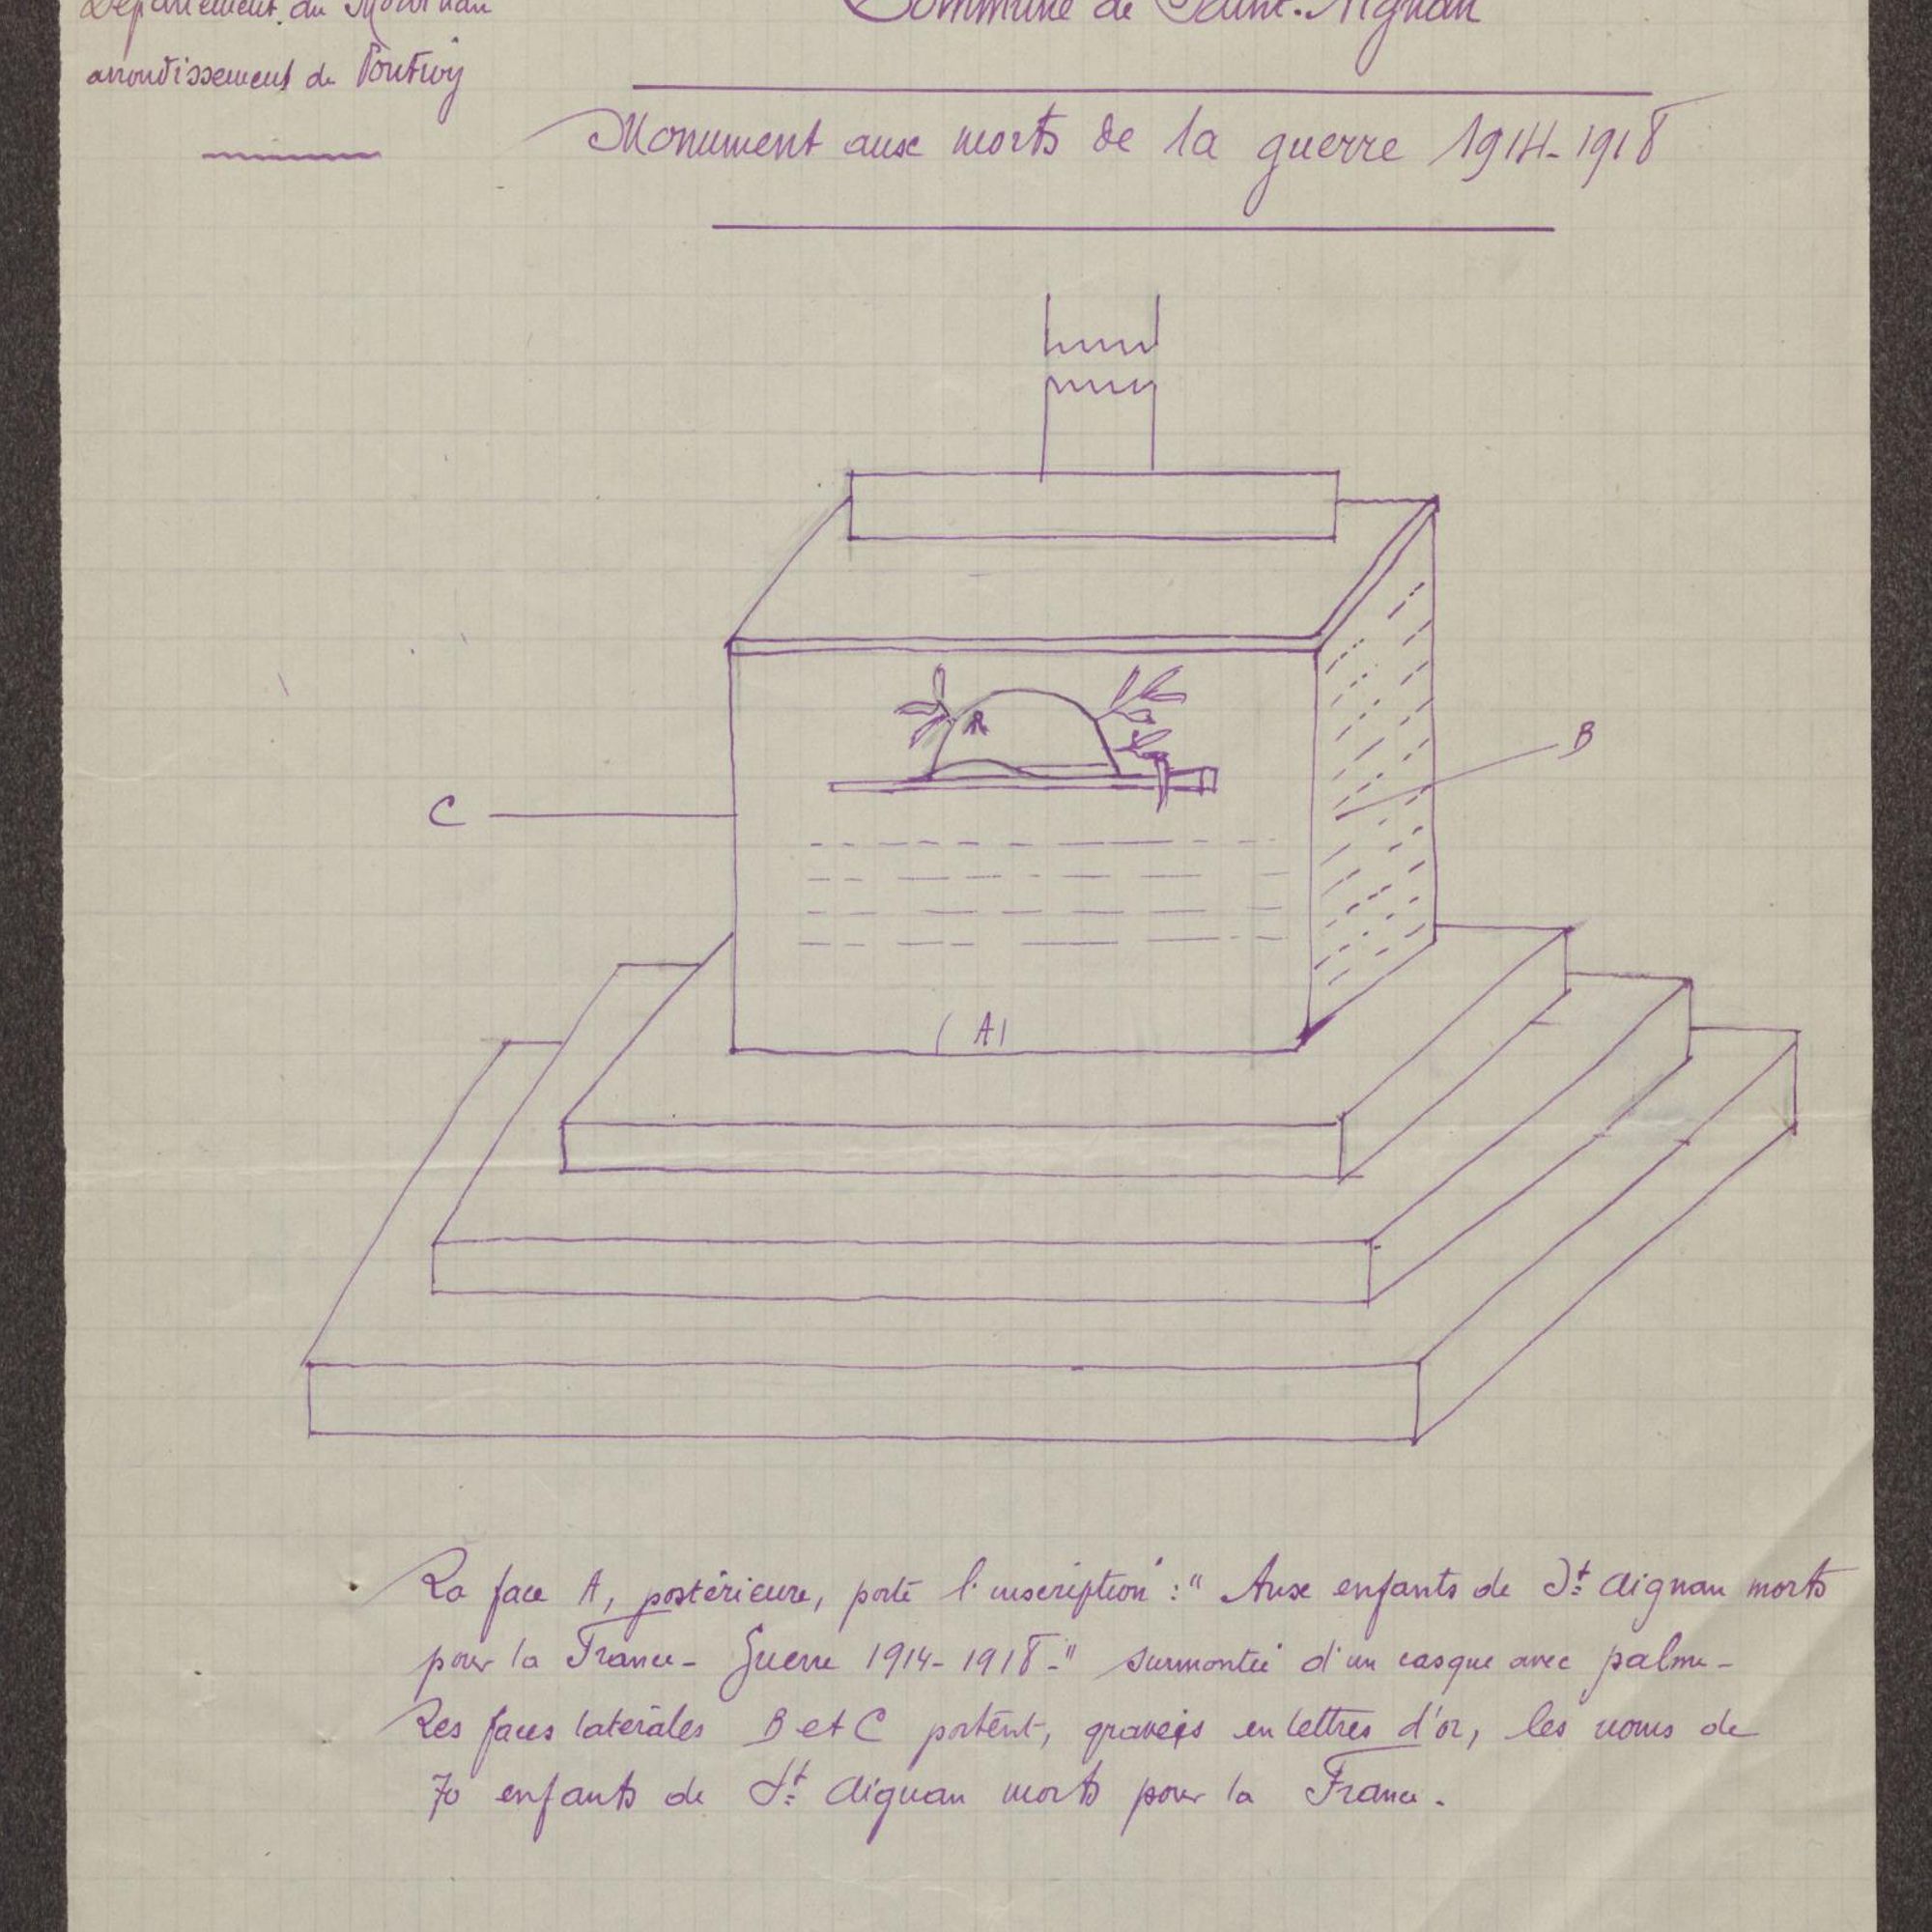 Département du Morbihan
Commune de Saint-Aignan
arrondissement de Pontivy
Monument aux morts de la guerre 1914-1918
B
C
(A)
La face A, postérieure, porte l'inscription : " Aux enfants de St Aignan morts
pour la France - Guerre 1914-1918 -" surmontée d'un casque avec palme -
Les faces latérales B et C portent, gravés en lettres d'or, les noms de
70 enfants de St Aignan morts pour la France.